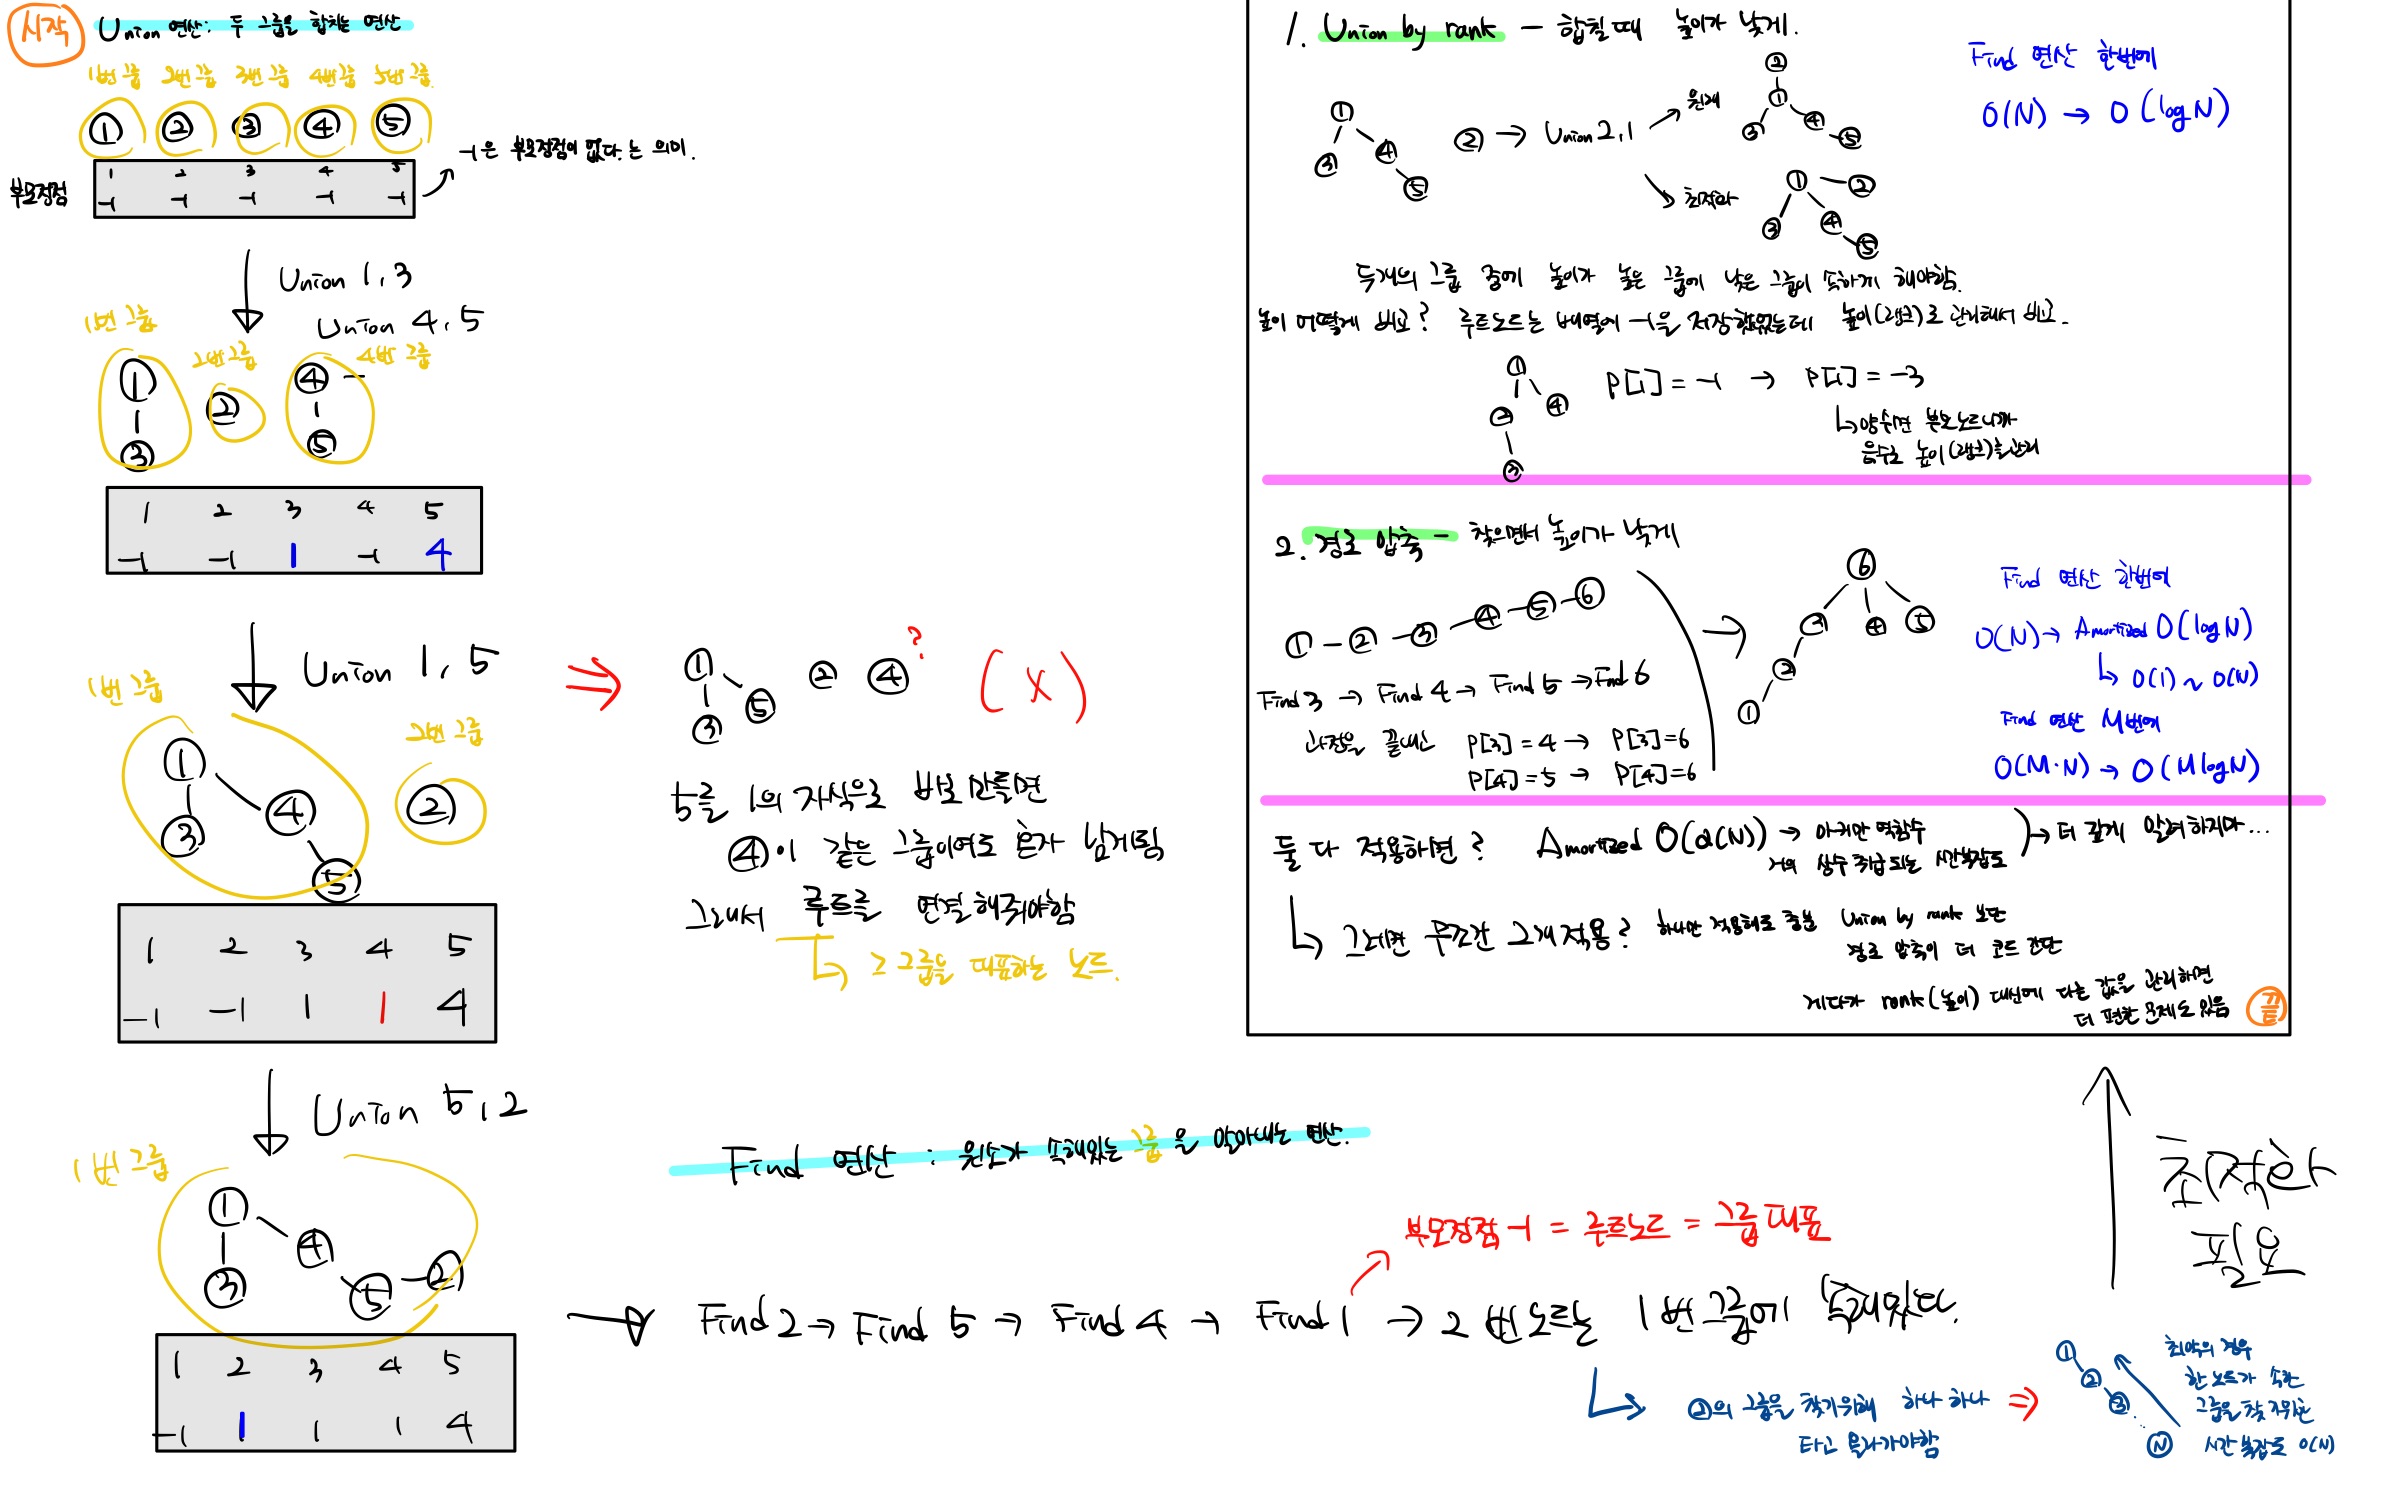 시작
Union 연산: 두 그룹을 합치는 연산
1번 그룹 2번 그룹 3번 그룹 4번 그룹 5번 그룹
1 2 3 4 5
부모정점
1 2 3 4 5
-1 -1 -1 -1 -1
-1은 부모정점이 없다.는 의미.
Union 1, 3
Union 4, 5
1번 그룹 2번 그룹 4번 그룹
1 2 4
3 5
1 2 3 4 5
-1 -1 1 -1 4
Union 1, 5
1번 그룹 2번 그룹
1 4 2
3 5
1 2 3 4 5
-1 -1 1 1 4
⇒ 1 2 4 ? (X)
3 5
5를 1의 자식으로 바로 만들면
④이 같은 그룹이여도 혼자 남게됨
그래서 루트를 연결해줘야함
↳ 그 그룹을 대표하는 노드.
Union 5, 2
1번 그룹
1 4 2
3 5
1 2 3 4 5
-1 1 1 1 4
Find 연산 : 원소가 속해있는 그룹을 알아내는 연산.
부모정점 -1 = 루트노드 = 그룹 대표
→ Find 2 → Find 5 → Find 4 → Find 1 → 2번 노드는 1번 그룹에 속해있다.
↳ ②의 그룹을 찾기위해 하나 하나
타고 올라가야함
⇒ 1 2 3 ... N
최악의 경우
한 노드가 속한
그룹을 찾기위한
시간 복잡도 O(N)
최적화
필요
1. Union by rank - 합칠때 높이가 낮게.
1 3 4 5
② → Union 2, 1
원래
2 1 3 4 5
최적화
1 2 3 4 5
Find 연산 한번에
O(N) → O(logN)
두개의 그룹 중에 높이가 높은 그룹에 낮은 그룹이 속하게 해야함.
높이 어떻게 비교? 루트노드는 배열에 -1을 저장했었는데 높이(랭크)로 관리해서 비교.
1 2 4 3
P[1] = -1 → P[1] = -3
↳ 양수면 부모노드니까
음수로 높이(랭크)를 관리
2. 경로 압축 - 찾으면서 높이가 낮게
1 - 2 - 3 - 4 - 5 - 6
Find 3 → Find 4 → Find 5 → Find 6
과정을 끝내신
P[3] = 4 → P[3] = 6
P[4] = 5 → P[4] = 6
6 3 4 5 2 1
Find 연산 한번에
O(N) → Amortized O(logN)
↳ O(1) ~ O(N)
Find 연산 M번에
O(M·N) → O(MlogN)
둘 다 적용하면? Amortized O(α(N)) → 아커만 역함수
거의 상수 취급되는 시간복잡도
→ 더 깊게 알려하지마...
↳ 그러면 무조건 그게 적용? 하나만 적용해도 충분 Union by rank 보단
경로 압축이 더 코드 간단
게다가 rank(높이) 대신에 다른 값을 관리하면
더 편한 문제도 있음
끝